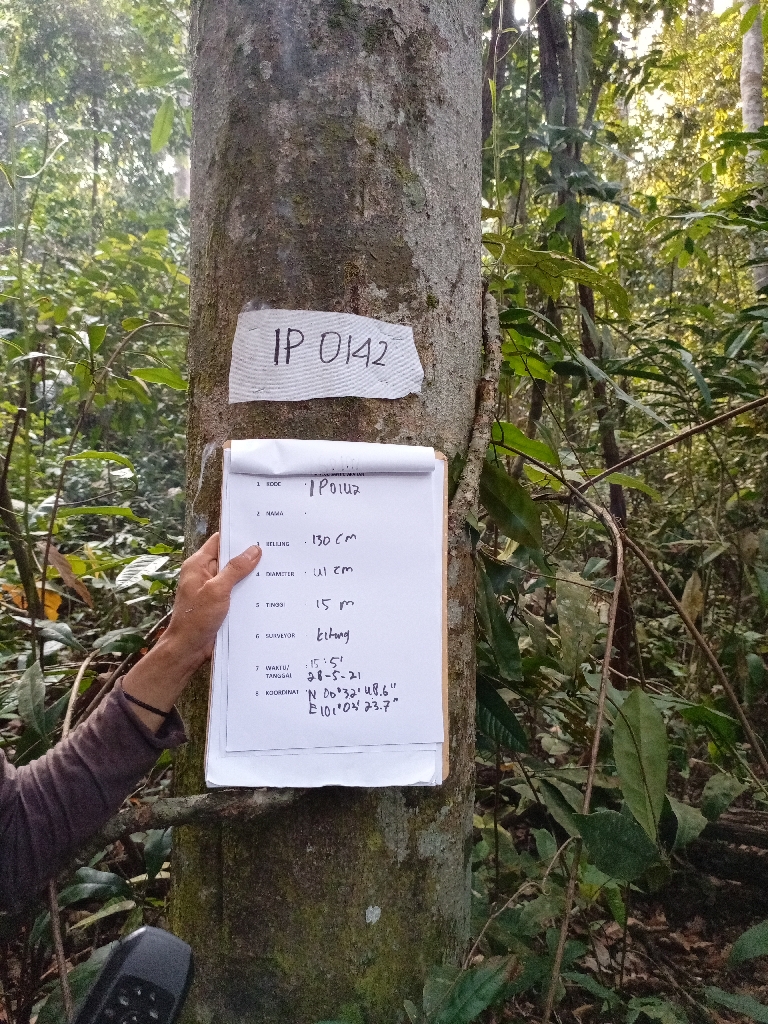 IP 0142
1 KODE : IP0142
2 NAMA :
3 KELILING : 130 cm
4 DIAMETER : 41 cm
5 TINGGI : 15 m
6 SURVEYOR
7 WAKTU/ : 15:5'
TANGGAL 28-5-21
8 KOORDINAT : N 00°32' 48.6"
E 101°03' 23.7"